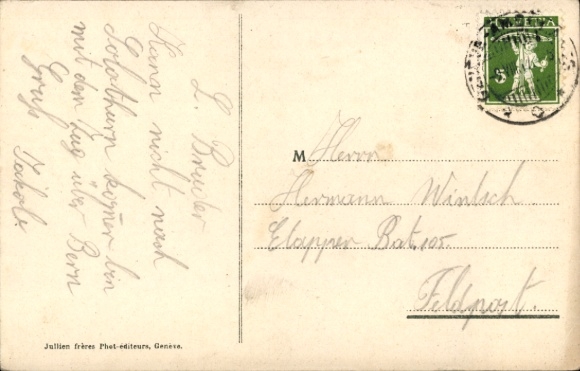 L. Bruder
Kann nicht nach
Solothurn kom̄en bin
mit dem Zug über Bern
Gruss Jakob.
M Herrn
Hermann Wintsch.
Etappen Bat. 105.
Feldpost.
Jullien frères Phot-éditeurs, Genève.